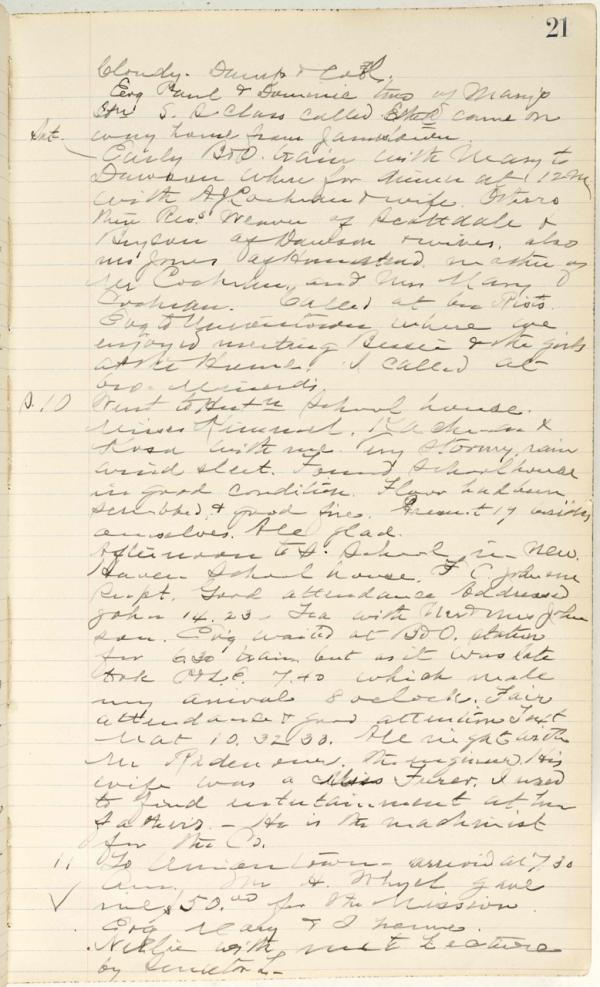 21
Cloudy. Damp & Cold.
Evg Paul & Dominic two of Mary's
S. S Class called & came on
way home from Jamestown.
Sat. Early B&O. train with Mary to
Dawson where for dinner at 12 M
with A J Cochran & wife.
Weaver of Scottdale &
Bryson of Dawson & wives. also
Mrs Jones of Homestead mother of
Mr Cochran, and Mrs Mary
Cochran. Called at
Evg to Uniontown where we
enjoyed meeting Bessie & the girls
at the Home. I called at
S. 10 Went to School house.
Misses Kimmel, &
Rosa with me. Very stormy, rain
wind sleet. Found School house
in good condition. Floor had been
scrubbed, & good fire. Present 17 besides
ourselves. All glad.
Afternoon to S. School in New
Haven School house. F C. Johnson
Supt. Good attendance Addressed
John 14. 23 - Tea with Mr & Mrs John
son. Evg waited at B&O. station
for 6.30 train but as it was late
took P&L.E. 7.40 which made
my arrival 8 oclock. Fair
attendance & good attention Text
Mat 10. 32 33. All night with
Mr Ridenour, the engineer. His
wife was a Miss Furer. I used
to find entertainment at her
father's. - He is the machinist
for the Co.
11 To Uniontown - arrived at 7.30
am. Mr H. Whyel gave
me $50.00 for the Mission.
Evg Mary & I home.
Nellie with met Lecture
by Senator L-